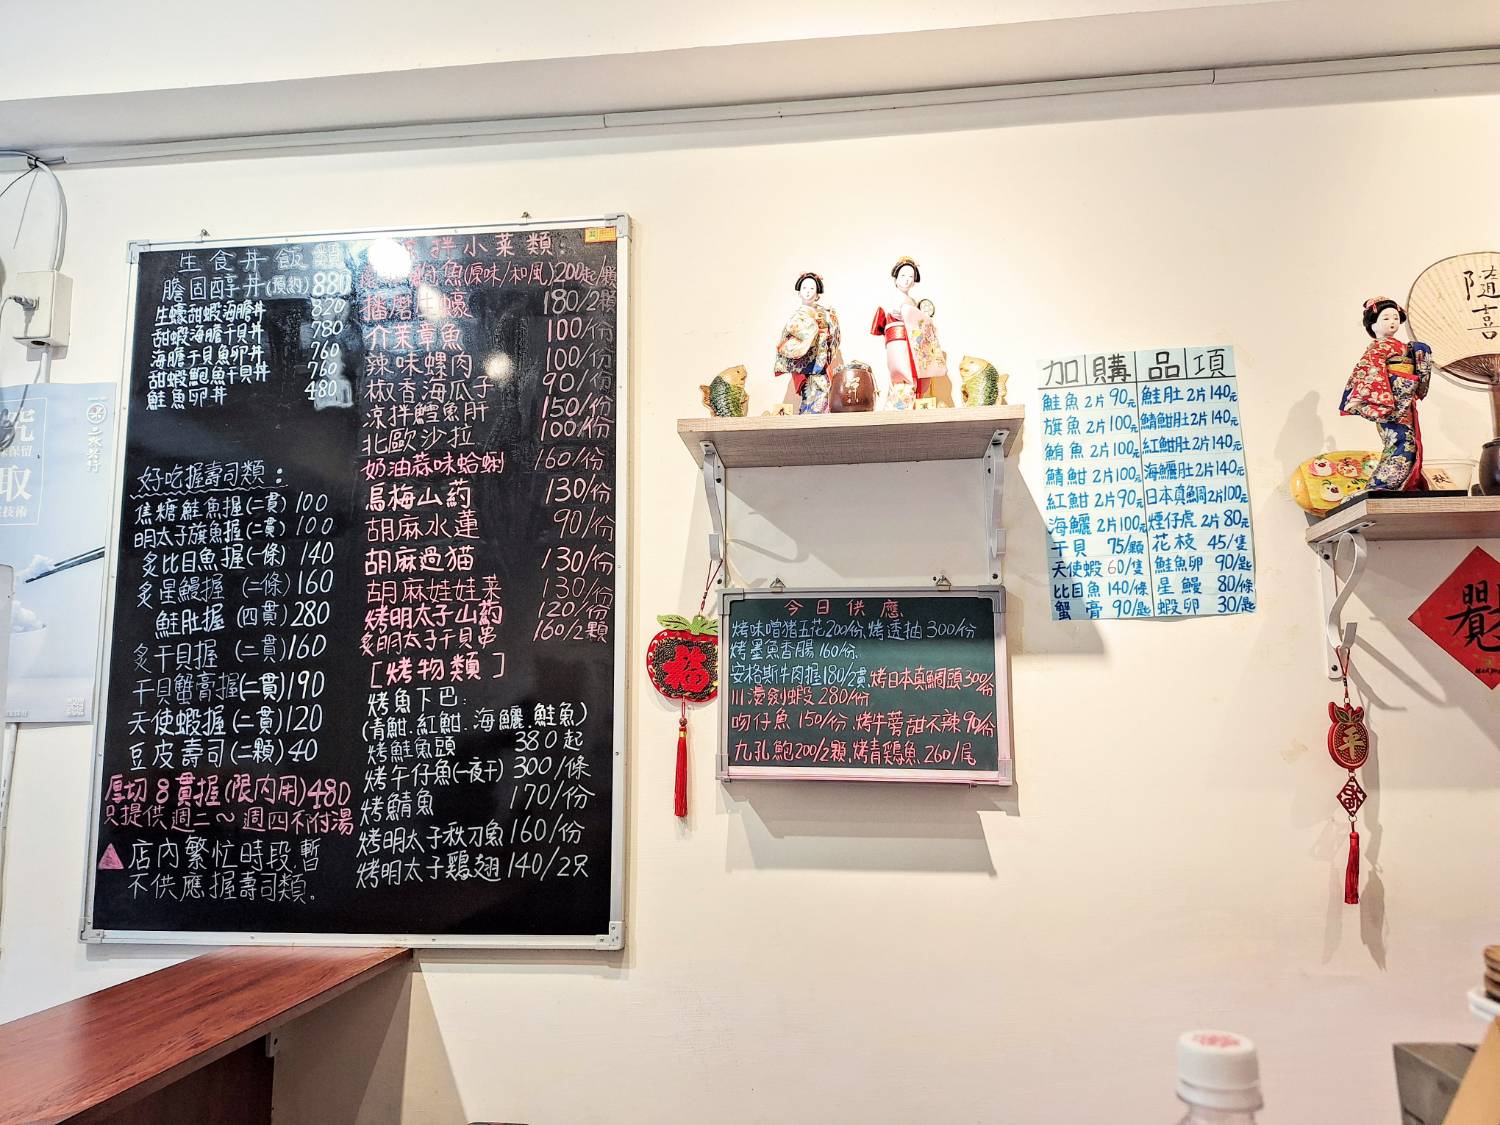 生食丼飯類
膽固醇丼(預約)880
生蠔甜蝦海膽丼 820
甜蝦海膽干貝丼 780
海膽干貝魚卵丼 760
甜蝦鮑魚干貝丼 760
鮭魚卵丼 480
好吃握壽司類：
焦糖鮭魚握(二貫)100
明太子旗魚握(二貫)100
炙比目魚握(一條)140
炙星鰻握(二條)160
鮭肚握(四貫)280
炙干貝握(二貫)160
干貝蟹膏握(二貫)190
天使蝦握(二貫)120
豆皮壽司(二顆)40
厚切8貫握(限內用)480
只提供週二～週四不附湯
店內繁忙時段,暫
不供應握壽司類。
拌小菜類：
魚(原味/和風)200起/顆
播磨生蠔 180/2顆
介茉章魚 100/份
辣味螺肉 100/份
椒香海瓜子 90/份
涼拌鱈魚肝 150/份
北歐沙拉 100/份
奶油蒜味蛤蜊 160/份
烏梅山葯 130/份
胡麻水蓮 90/份
胡麻過猫 130/份
胡麻娃娃菜 130/份
烤明太子山葯 120/份
炙明太子干貝串 160/2顆
[烤物類]
烤魚下巴：
(青魽.紅魽.海鱺.鮭魚)
烤鮭魚頭 380起
烤午仔魚(一夜干)300/條
烤鯖魚 170/份
烤明太子秋刀魚160/份
烤明太子鷄翅140/2只
今日供應
烤味噌猪五花200/份.烤透抽300/份
烤墨魚香腸160/份.
安格斯牛肉握180/2貫.烤日本真鯛頭300/份
川燙劍蝦280/份
吻仔魚150/份.烤牛蒡甜不辣90/份
九孔鮑200/2顆.烤青鷄魚260/尾
加購品項
鮭魚2片90元
旗魚2片100元
鮪魚2片100元
鯖魽2片100元
紅魽2片90元
海鱺2片100元
干貝75/顆
天使蝦60/隻
比目魚140/條
蟹膏90/匙
鮭肚2片140元
鯖魽肚2片140元
紅魽肚2片140元
海鱺肚2片140元
日本真鯛2片100元
煙仔虎2片80元
花枝45/隻
鮭魚卵90/匙
星鰻80/條
蝦卵30/匙
福
隨
喜
取